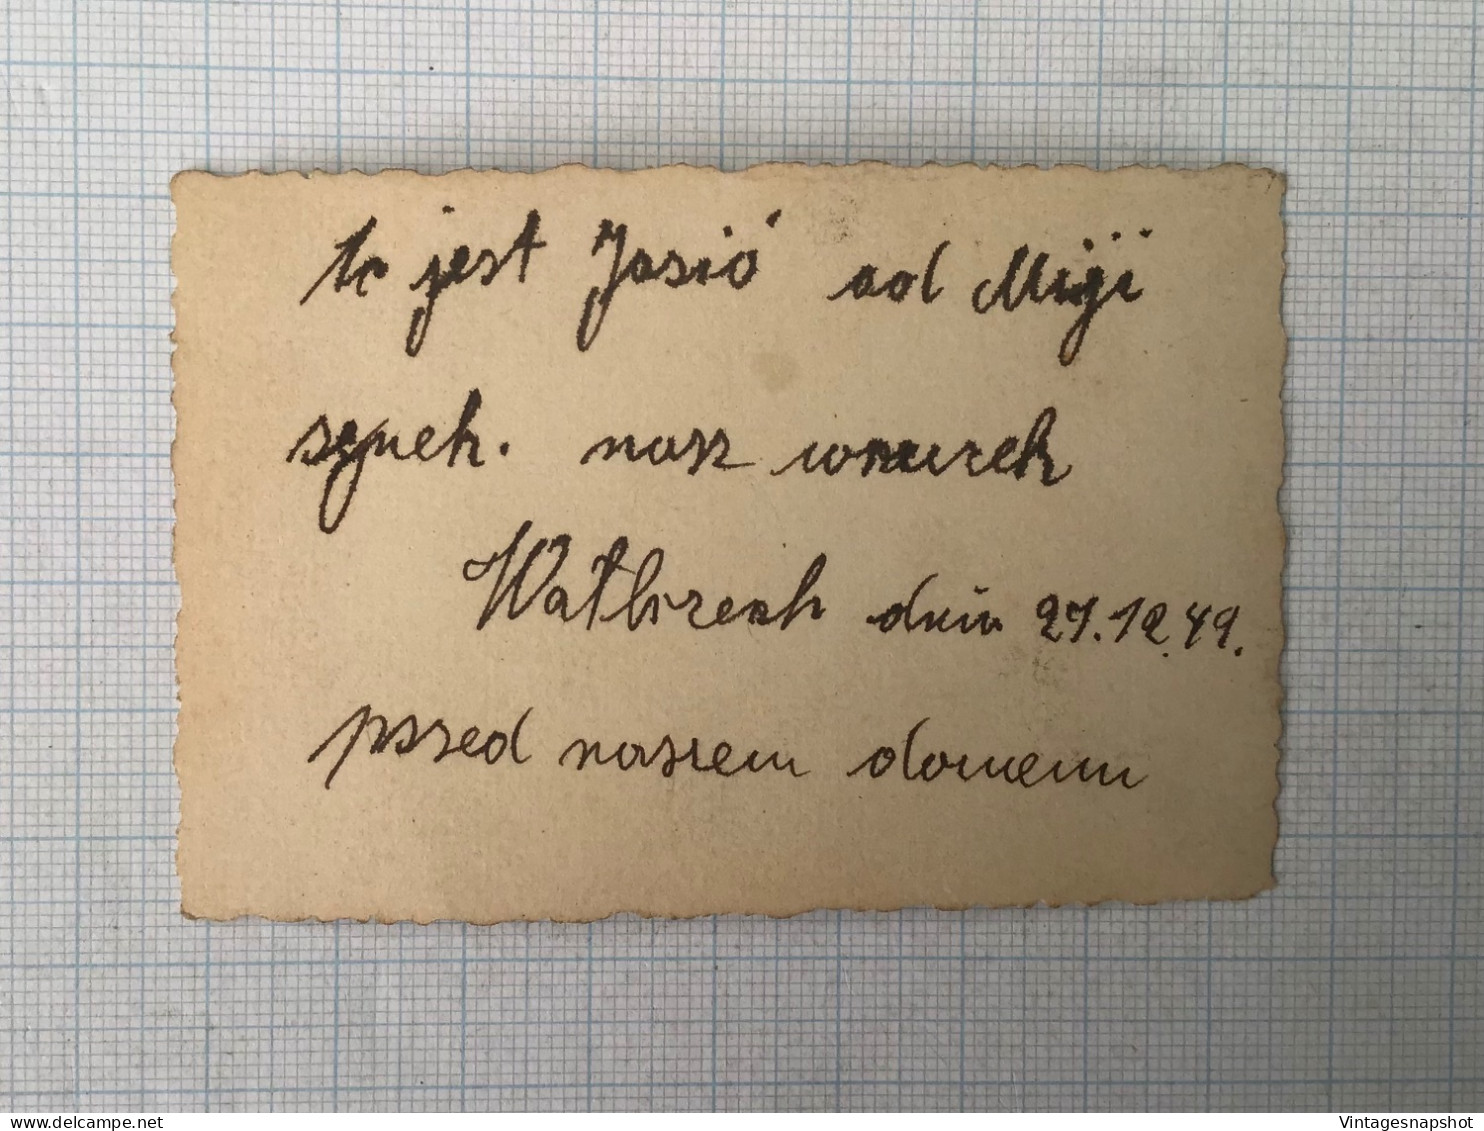 to jest Jasió od Miji
synek. nasz wnucek
Wałbrzech dnia 27.12.49.
pszed naszem domemu
www.delcampe.net
Vintagesnapshot